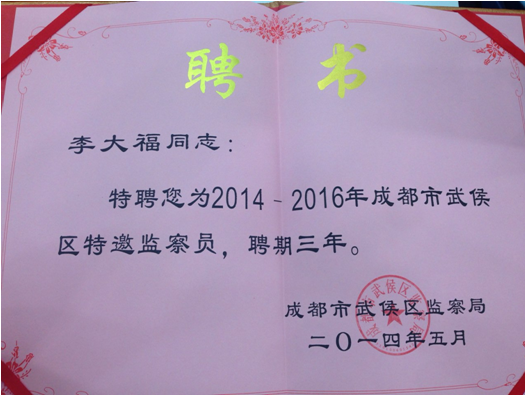 聘书
李大福同志：
特聘您为2014-2016年成都市武侯
区特邀监察员，聘期三年。
成都市武侯区监察局
二〇一四年五月